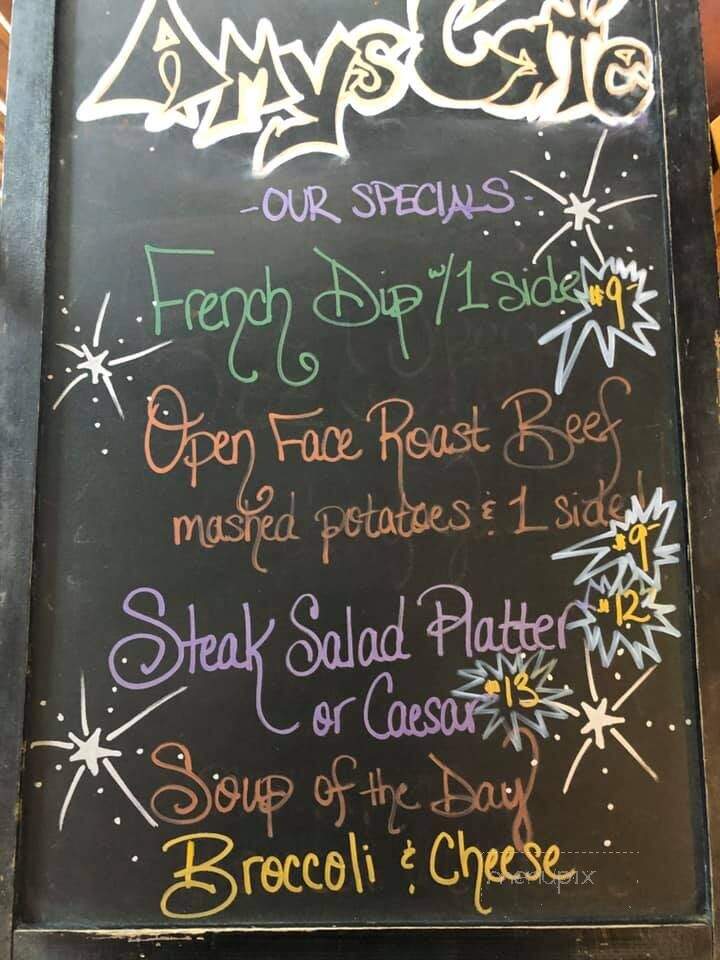 Amys
-OUR SPECIALS-
French Dip w/1 side $9-
Open Face Roast Beef
mashed potatoes & 1 side $9-
Steak Salad Platter $12
or Caesar $13
Soup of the Day
Broccoli & Cheese
menupix